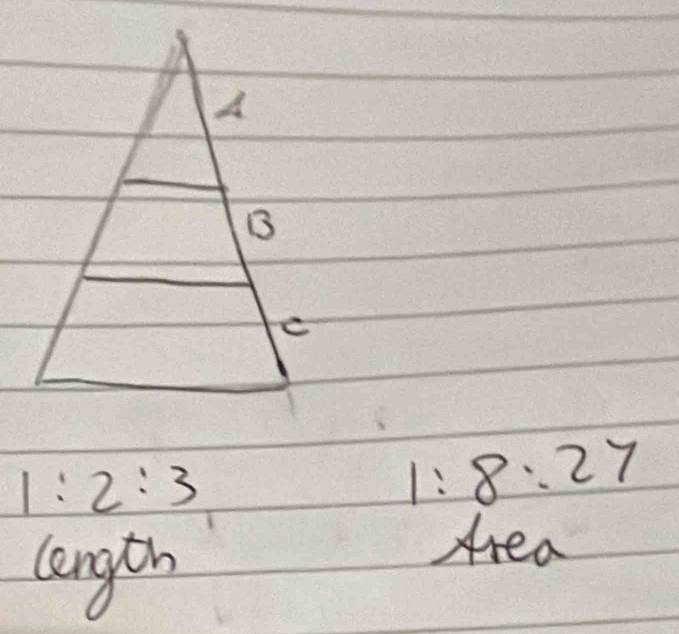 A
B
C
1:2:3 1:8:27
length Area